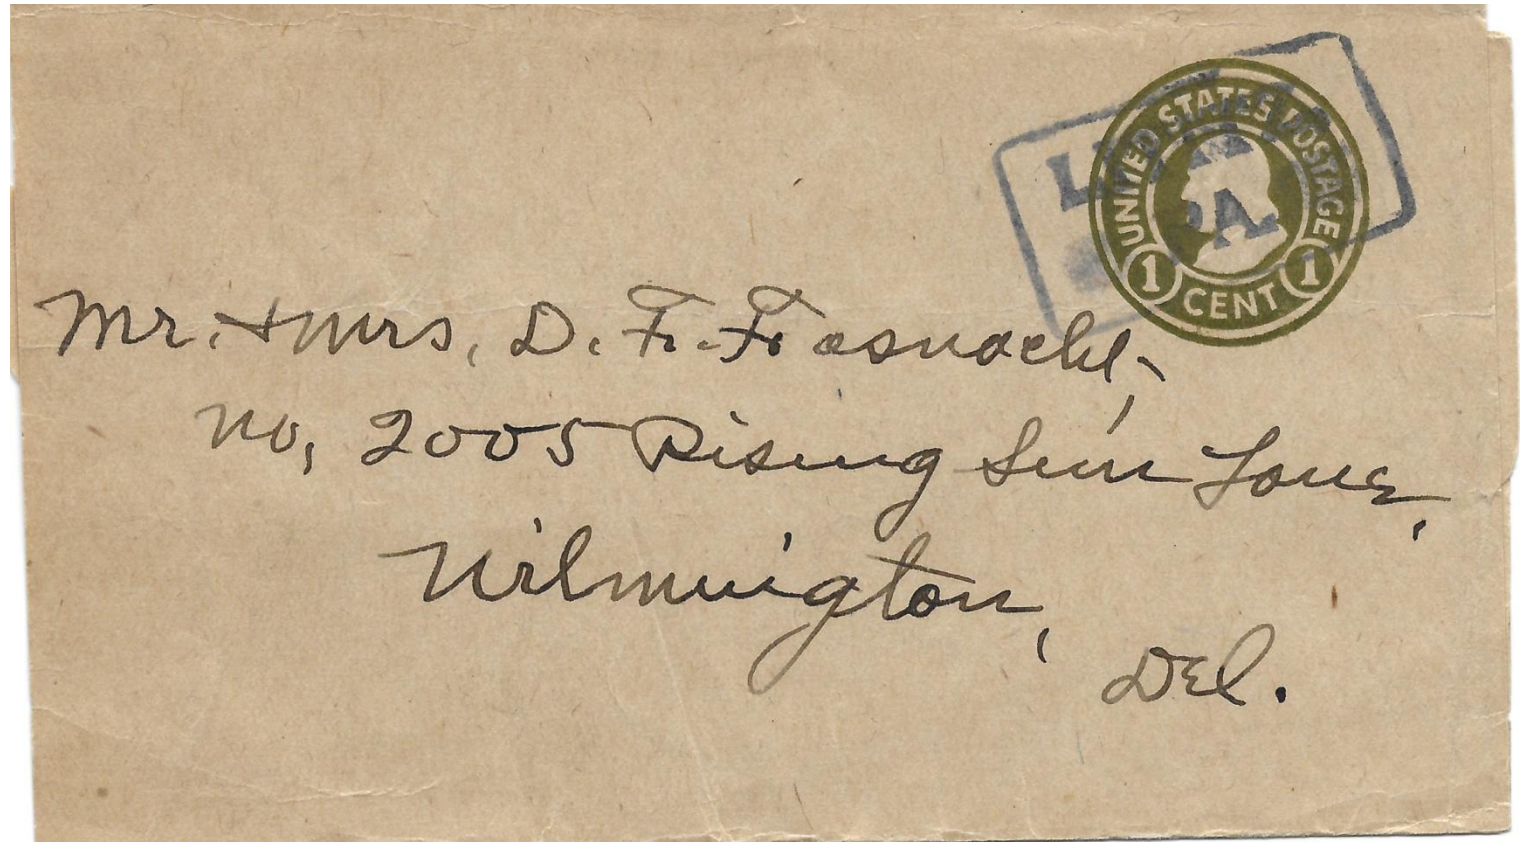 UNITED STATES POSTAGE
1 CENT 1
PA
Mr. + Mrs. D. F. Fasnacht,
no, 2005 Rising Sun Lane,
Wilmington,
Del.